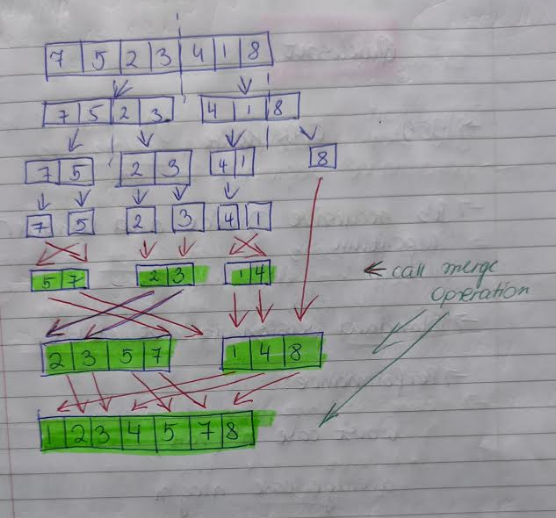 7 5 2 3 4 1 8
7 5 2 3 4 1 8
7 5 2 3 4 1 8
7 5 2 3 4 1
5 7 2 3 1 4 ← call merge
operation
2 3 5 7 1 4 8
1 2 3 4 5 7 8